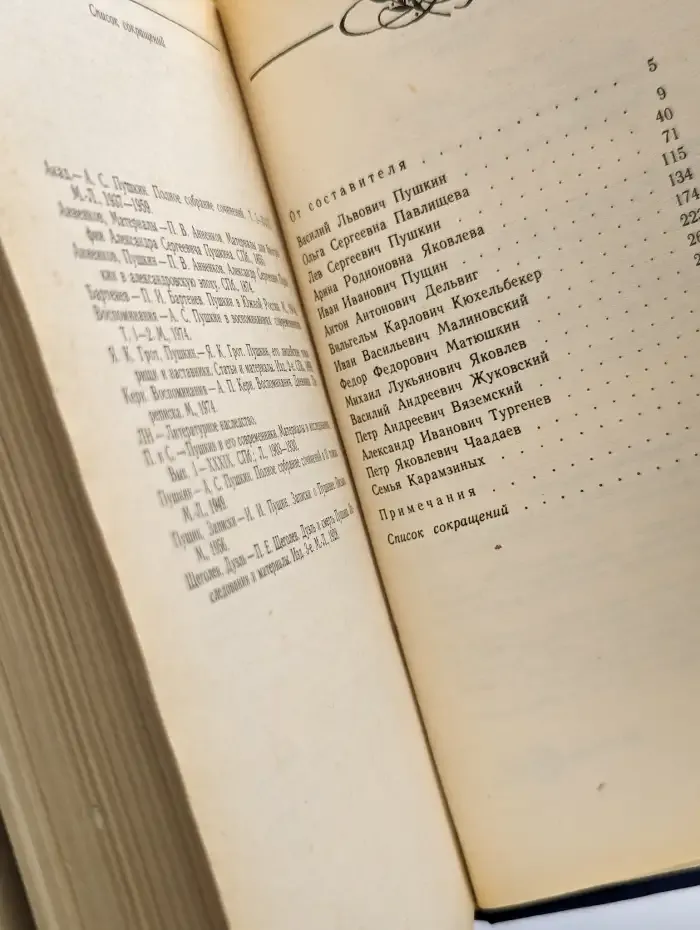 Список сокращений
Акад.—А. С. Пушкин. Полное собрание сочинений, т. 1—
М.-Л., 1937—1959.
Анненков. Материалы—П. В. Анненков. Материалы для
фии Александра Сергеевича Пушкина. СПб.,
Анненков. Пушкин—П. В. Анненков. Александр Сергеевич
кин в александровскую эпоху. СПб., 1874.
Бартенев—П. И. Бартенев. Пушкин в Южной России. М.,
Воспоминания—А. С. Пушкин в воспоминаниях современников.
Т. 1—2. М., 1974.
Я. К. Грот. Пушкин.—Я. К. Грот. Пушкин, его лицейские
рищи и наставники. Статьи и материалы. Изд. 2-е. СПб.,
Керн. Воспоминания—А. П. Керн. Воспоминания. Дневники. Пе-
реписка. М., 1974.
ЛН—Литературное наследство.
П. и С.—Пушкин и его современники. Материалы и исследования.
Вып. I—XXXIX. СПб.; Л., 1903—1930.
Пушкин—А. С. Пушкин. Полное собрание сочинений в
М.-Л., 1949.
Пущин. Записки—И. И. Пущин. Записки о Пушкине.
М., 1956.
Щеголев. Дуэль—П. Е. Щеголев. Дуэль и смерть Пушкина. Ис-
следования и материалы. Изд. 3-е. М.-Л., 1928.
От составителя 5
Василий Львович Пушкин 9
Ольга Сергеевна Павлищева 40
Лев Сергеевич Пушкин 71
Арина Родионовна Яковлева 115
Иван Иванович Пущин 134
Антон Антонович Дельвиг 174
Вильгельм Карлович Кюхельбекер
Иван Васильевич Малиновский
Федор Федорович Матюшкин
Михаил Лукьянович Яковлев
Василий Андреевич Жуковский
Петр Андреевич Вяземский
Александр Иванович Тургенев
Петр Яковлевич Чаадаев
Семья Карамзиных
Примечания
Список сокращений